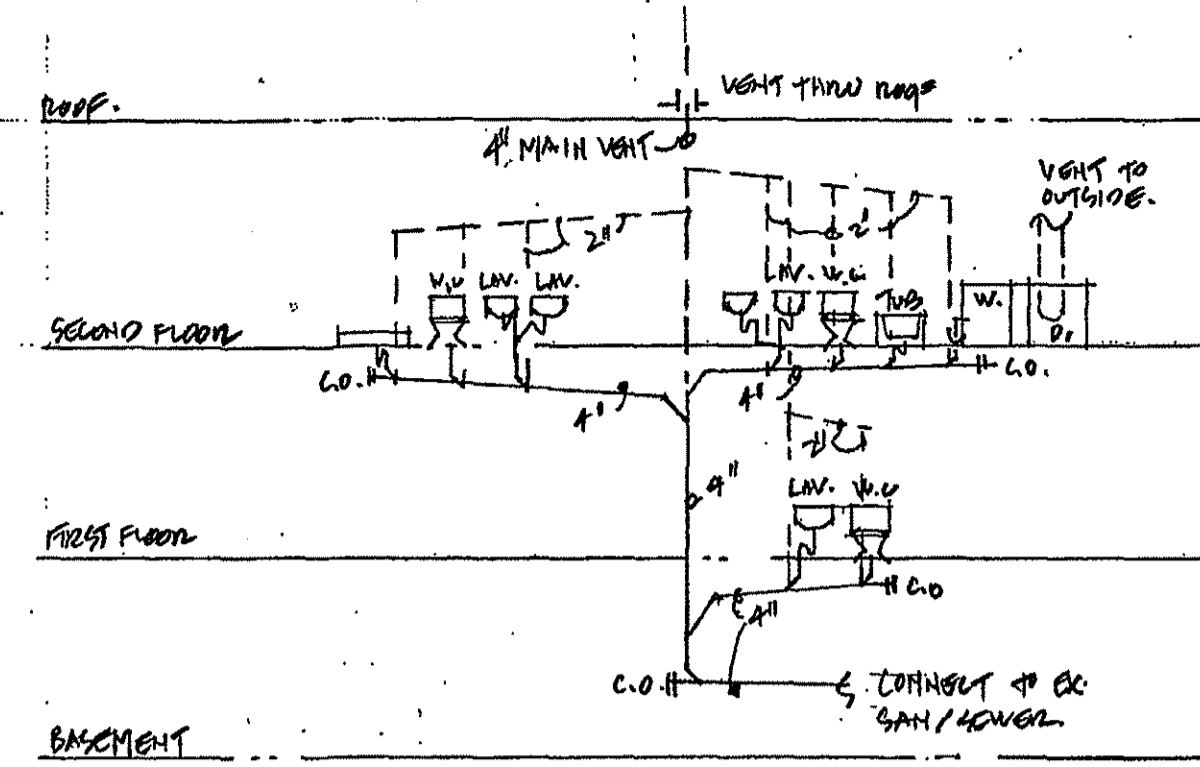 VENT THRU ROOF
ROOF.
4" MAIN VENT
VENT TO
OUTSIDE.
2"
2"
W.C
LAV.
LAV.
LAV.
W.C.
TUB
W.
D.
SECOND FLOOR
C.O.
C.O.
4"
4"
2"
4"
LAV.
W.C
FIRST FLOOR
C.O
4"
C.O.
CONNECT TO EX.
SAN/SEWER.
BASEMENT